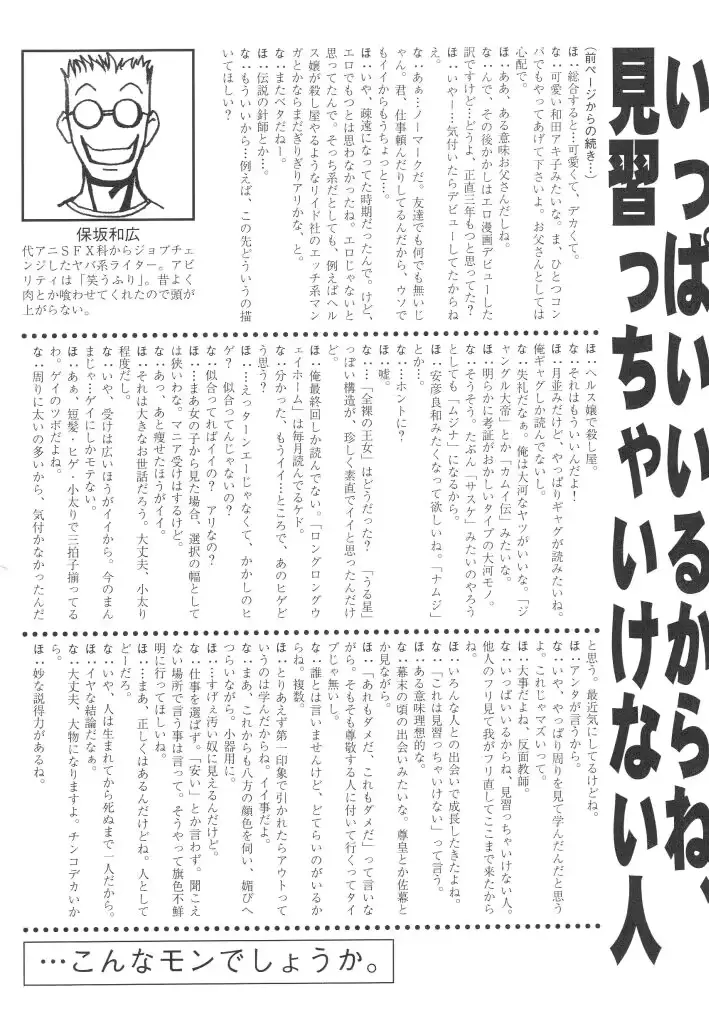 いっぱいいるからね、
見習っちゃいけない人
(前ページからの続き…)
ほ：総合すると…可愛くて、デカくて。
な：可愛い和田アキ子みたいな。ま、ひとつコン
パでもやってあげて下さいよ。お父さんとしては
心配で。
ほ：ああ、ある意味お父さんだしね。
な：んで、その後かかしはエロ漫画デビューした
訳ですけど…どうよ、正直三年もつと思ってた？
ほ：いやー…気付いたらデビューしてたからね
え。
な：あぁ…ノーマークだ。友達でも何でも無いじ
ゃん。君、仕事頼んだりしてるんだから、ウソで
もイイからもうちょっと…。
ほ：いや、疎遠になってた時期だったんで。けど、
エロでもつとは思わなかったね。エロじゃないと
思ってたんで。そっち系だとしても、例えばヘル
ス嬢が殺し屋やるようなリイド社のエッチ系マン
ガとかならまだぎりぎりアリかな、と。
な：またベタだねー。
ほ：伝説の針師とか…。
な：もういいから…例えば、この先どういうの描
いてほしい？
保坂和広
代アニＳＦＸ科からジョブチェ
ンジしたヤバ系ライター。アビ
リティは「笑うふり」。昔よく
肉とか喰わせてくれたので頭が
上がらない。
ほ：ヘルス嬢で殺し屋。
な：それはもういいんだよ！
ほ：月並みだけど、やっぱりギャグが読みたいね。
俺ギャグしか読んでないし。
な：失礼だなぁ。俺は大河なヤツがいいな。「ジ
ャングル大帝」とか「カムイ伝」みたいな。
ほ：明らかに考証がおかしいタイプの大河モノ。
な：そうそう。たぶん「サスケ」みたいのやろう
としても「ムジナ」になるから。
ほ：安彦良和みたくなって欲しいね。「ナムジ」
とか…。
な：…ホントに？
ほ：嘘。
な：…「全裸の王女」はどうだった？「うる星」
っぽい構造が、珍しく素直でイイと思ったんだけ
ど。
ほ：俺最終回しか読んでない。「ロングロングウ
ェイホーム」は毎月読んでるケド。
な：分かった、もうイイ…ところで、あのヒゲど
う思う？
ほ：…えっターンエーじゃなくて、かかしのヒ
ゲ？　似合ってんじゃないの？
な：似合ってればイイの？　アリなの？
ほ：…まあ女の子から見た場合、選択の幅として
は狭いわな。マニア受けはするけど。
な：あっ、あと痩せたほうがイイ。
ほ：それは大きなお世話だろう。大丈夫、小太り
程度だし。
な：いや、受けは広いほうがイイから。今のまん
まじゃ…ゲイにしかモテない。
ほ：あぁ、短髪・ヒゲ・小太りで三拍子揃ってる
わ。ゲイのツボだよね。
な：周りに太いの多いから、気付かなかったんだ
と思う。最近気にしてるけどね。
ほ：アンタが言うから。
な：いや、やっぱり周りを見て学んだんだと思う
よ。これじゃマズいって。
ほ：大事だよね、反面教師。
な：いっぱいいるからね、見習っちゃいけない人。
他人のフリ見て我がフリ直してここまで来たから
ね。
ほ：いろんな人との出会いで成長したきたよね。
な：「これは見習っちゃいけない」って言う。
ほ：ある意味理想的な。
な：幕末の頃の出会いみたいな。尊皇とか佐幕と
か見ながら。
ほ：「あれもダメだ、これもダメだ」って言いな
がら。そもそも尊敬する人に付いて行くってタイ
プじゃ無いし。
な：誰とは言いませんけど、どてらいのがいるか
らね。複数。
ほ：とりあえず第一印象で引かれたらアウトって
いうのは学んだからね。イイ事だよ。
な：まあ、これからも八方の顔色を伺い、媚びへ
つらいながら。小器用に。
ほ：…すげぇ汚い奴に見えるんだけど。
な：仕事を選ばず。「安い」とか言わず。聞こえ
ない場所で言う事は言って。そうやって旗色不鮮
明に行ってほしいね。
ほ：…まあ、正しくはあるんだけどね。人として
どーだろ。
な：いや、人は生まれてから死ぬまで一人だから。
ほ：イヤな結論だなぁ。
な：大丈夫、大物になりますよ。チンコデカいか
ら。
ほ：妙な説得力があるね。
…こんなモンでしょうか。